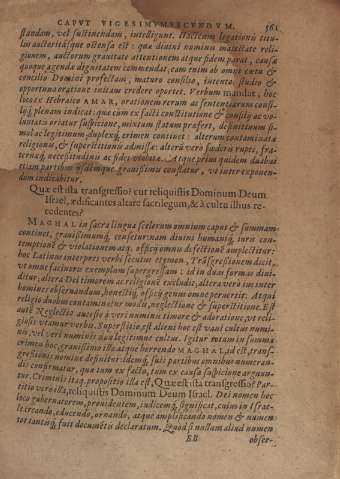 CAPVT VIGESIMVMSECVNDVM. 361
standam, vel sustinendam, intelligunt. Hactenus legationis titulum
auctoritasque ostensa est: quæ diuini numinis maiestate religionem,
auctorum grauitate attentionem atque fidem parat, causæ
quoque agendæ dignitatem commendat, cum enim ab omni cœtu &
concilio Domini profectam, maturo consilio, intento studio &
opportuna oratione initam credere oportet. Verbum mandat, hoc
loco ex Hebraico AMAR, orationem rerum ac sententiarum
plenam indicat: quæ cum ex facti constitutione & consilij ac voluntatis
oratur suspicione, mixtum statum præfert, definitiuum
simul ac legitimum, duplexq; crimen continet: alterum contaminatæ
religionis, & superstitionis admissæ: alterum vero fœderis rupti, fraternæq;
necessitudinis ac fidei violatæ. Atque prius quidem duabus
partibus iisdemque grauissimis constatur, vt interexponendum
indicabitur.
Quæ est ista transgressio? cur reliquistis Dominum Deum
Israel, ædificantes altare sacrilegum, & à cultu illius recedentes?
MAGHAL in sacra lingua scelerum omnium caput & summam
continet, grauissimumq; censetur: nam diuini humaniq; iuris contemptionem
& violationem atq; defectionem amplectitur:
hoc Latinus interpres verbi secutus etymon, Transgressionem dicit,
vt omne facinoris exemplum supergressam: id in duas formas diuiditur;
altera Dei timorem ac religionem excludit, altera verò ius inter
homines obseruandum, honestiq; officij genus omne peruertit. Atqui
religio duobus contaminatur modis, neglectione & superstitione. Est
autē Neglectio à veri numinis timore & adoratione, vt religiosis
vtamur verbis. Superstitio, est alieni hoc est vani cultus numinis,
vel veri numinis non legitimus cultus. Igitur totam in summa
criminis hoc, grauissimo illo atque horrendo MAGHAL, id est, transgressionis
nomine definitur: idemq; suis partibus omnibus numerandis
confirmatur, quæ tum ex facto, tum ex causæ suspicione arguuntur.
Criminis itaq; propositio illa est, Quæ est ista transgressio? Partitio
verò illa, reliquistis Dominum Deum Israel. Dei nomen hoc
loco gubernatorem, prouidentem, iudicemq; significat, cuius in Israele
creando, educendo, ornando, atque amplificando nomen & numen
tot tantisq; fuit documētis declaratum. Quod si nullum aliud numen
BB obser-